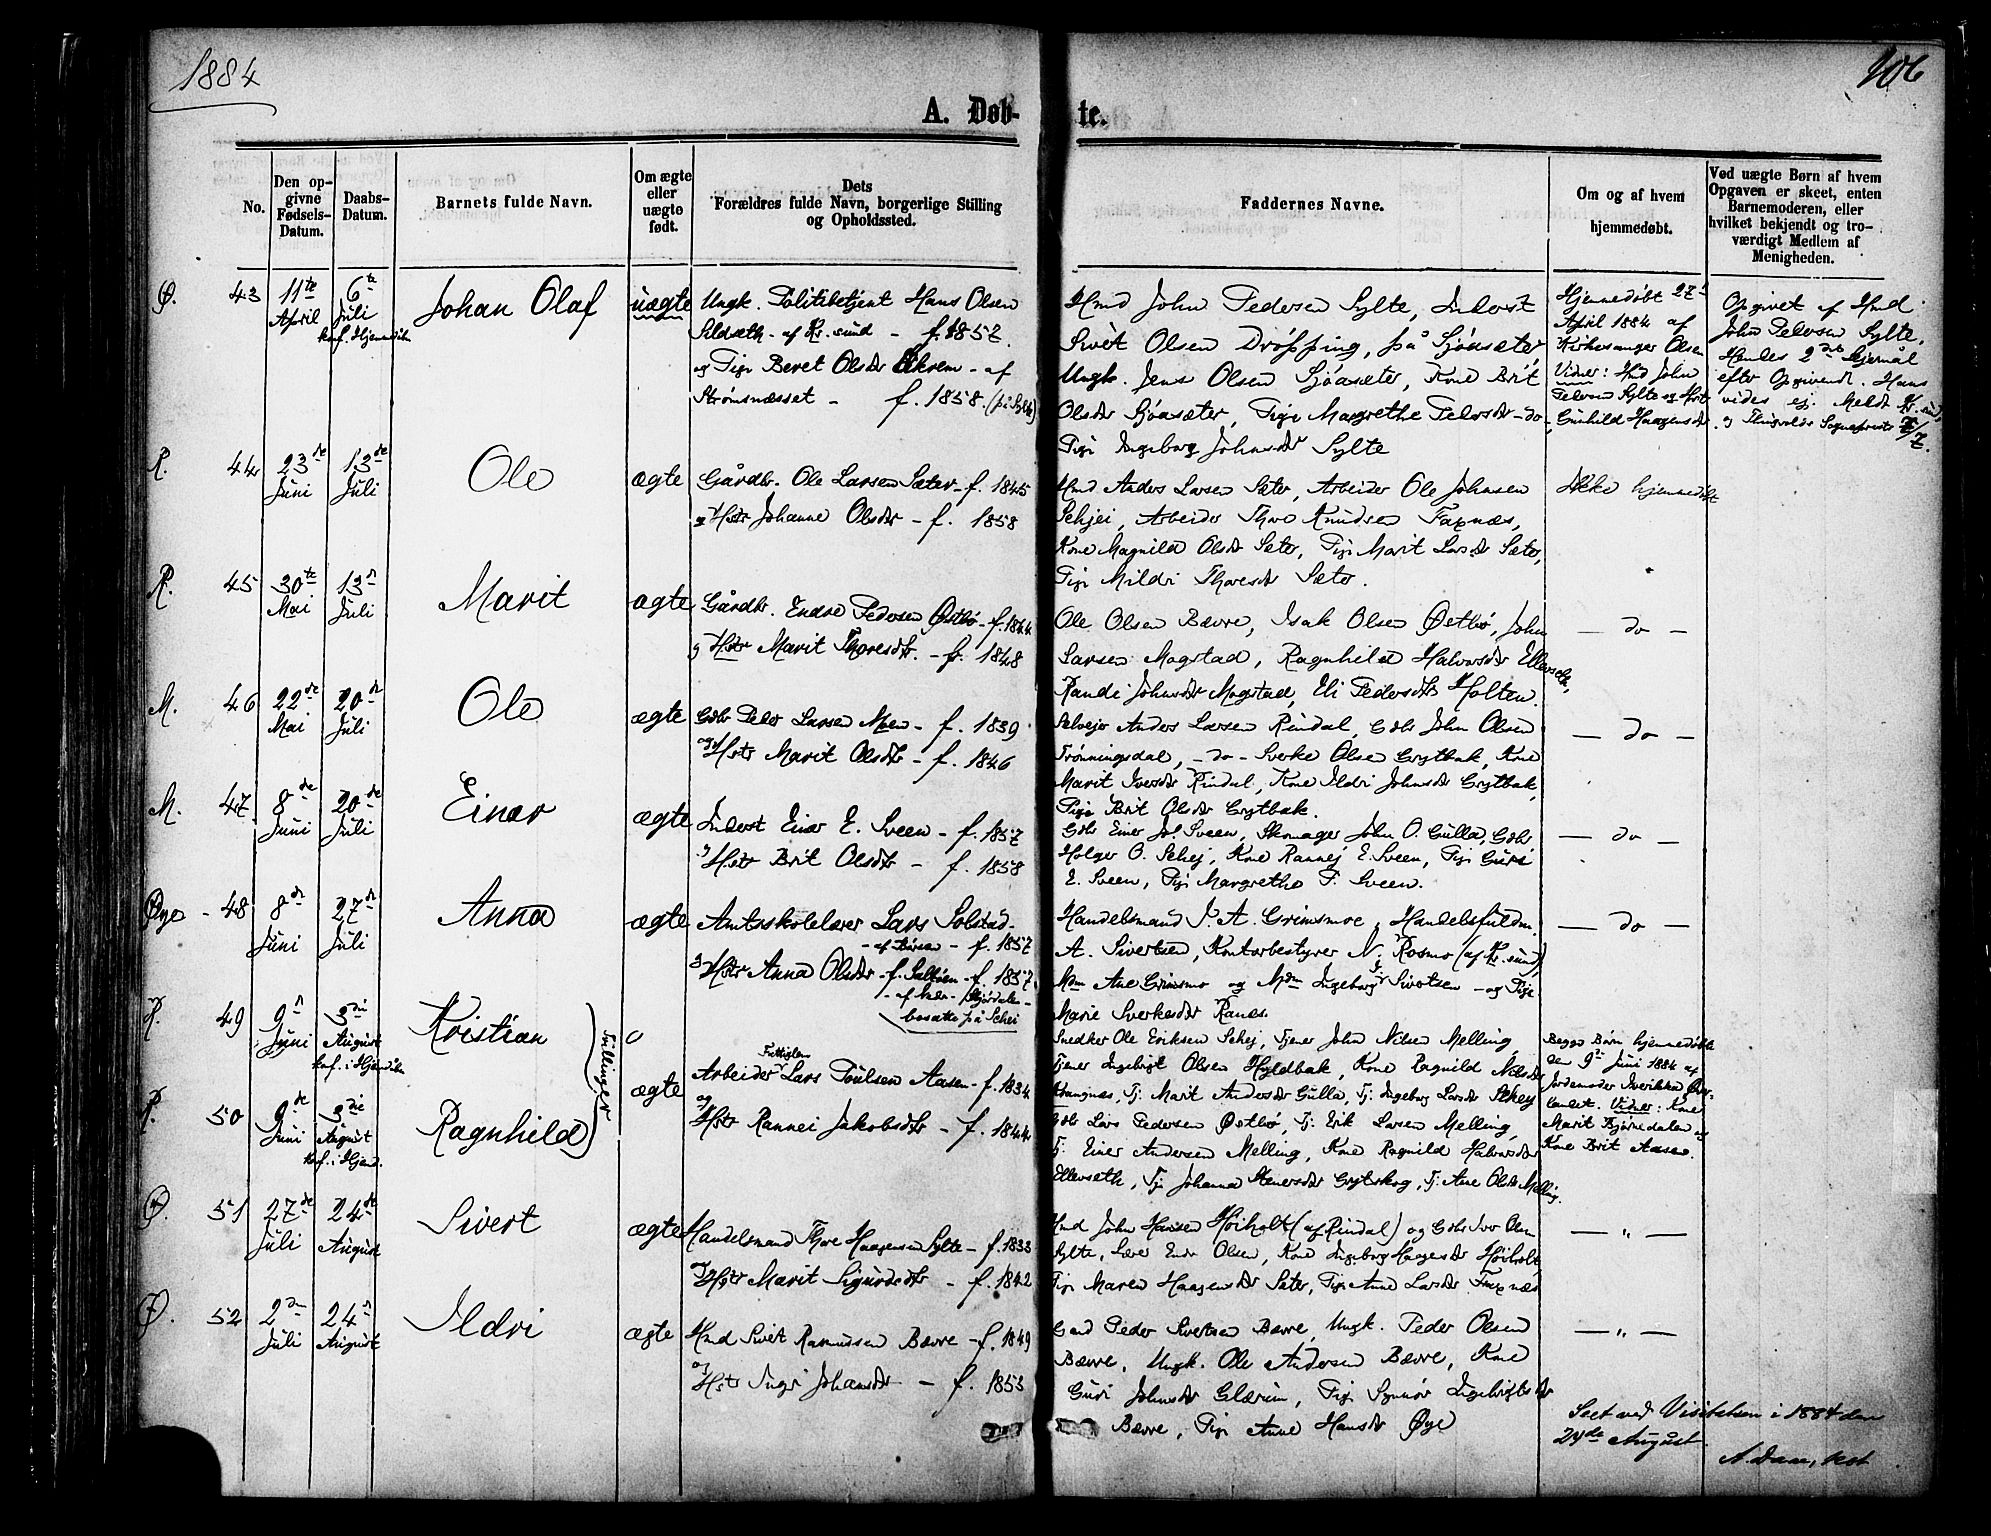 1884
106
A. Døb-
te.
No.
Den op-
givne
Fødsels-
Datum.
Daabs-
Datum.
Barnets fulde Navn.
Om ægte
eller
uægte
født.
Dets
Forældres fulde Navn, borgerlige Stilling
og Opholdssted.
Faddernes Navne.
Om og af hvem
hjemmedøbt.
Ved uægte Børn af hvem
Opgaven er skeet, enten
Barnemoderen, eller
hvilket bekjendt og tro-
værdigt Medlem af
Menigheden.
Ø. 43 11te April 6te Juli Johan Olaf uægte
Ungk. Politibetjent Hans Olsen
Sildsæth - af Kr.sund - f. 1857.
og Pige Beret Olsdtr - af
Strømsnæsset - f. 1858. (på Sylte)
Gmd John Pedersen Sylte, Inderst
Sivert Olsen Drøpping, på Sjöasæter
Ungk. Jens Olsen Sjöasæter, Kone Brit
Olsdtr Sjöasæter, Pige Margrethe Pedersdtr - do -
Pige Ingeborg Johnsdtr Sylte
Hjemmedøbt 27de
April 1884 af
Kirkesanger Olsen
Vidner: Gmd John
Pedersen Sylte og Hstr
Gunhild Haagensdtr
Opgivet af Gmd
John Pedersen Sylte.
Hendes 2det Lejermål
efter Opgivende. Hans
vides ej. Meldt Kr.sund
og Thingvolds Sognepræster 7/7.
R. 44 23de Juni 13de Juli Ole ægte
Gårdbr. Ole Larsen Sæter - f. 1845
og Hstr Johanne Olsdtr - f. 1858
Gmd Anders Larsen Sæter, Arbeider Ole Johnsen
Schjei, Arbeider Thore Knudsen Faxnæs,
Kone Magnild Olsdtr Sæter, Pige Marit Larsdtr Sæter,
Pige Mildri Thoresdtr Sæter.
Ikke hjemmedøbt
R. 45 30te Mai 13de Juli Marit ægte
Gårdbr. Endre Pedersen Østbø - f. 1844
og Hstr Marit Thoresdtr. - f. 1848
Ole Olsen Bævre, Isak Olsen Østbø, John
Larsen Mogstad, Ragnhild Halvorsdtr Ellevseth,
Randi Johnsdtr Mogstad, Eli Pedersdtr Holten.
- do -
M. 46 22de Mai 20de Juli Ole ægte
Gdbr Peder Larsen Moen - f. 1839
og Hstr Marit Olsdtr - f. 1846
Selvejer Anders Larsen Rindal, Gdbr John Olsen
Trønningsdal, - do - Sverke Olsen Grytbak, Kone
Marit Iversdtr Rindal, Kone Ildri Johnsdtr Grytbak,
Pige Brit Olsdtr Grytbak.
- do -
M. 47 8de Juni 20de Juli Einar ægte
Inderst Einar E. Sveen - f. 1857
og Hstr Brit Olsdtr - f. 1858
Gdbr Einer Jo. Sveen, Skomager John O. Gulla, Gdbr
Holger O. Schej, Kone Rannej E. Sveen, Pige Guri
E. Sveen, Pige Margrethe P. Sveen.
- do -
Øye - 48 8de Juni 27de Juli Anna ægte
Amtsskolelærer Lars Solstad -
- af Börsen - f. 1857
og Hstr Anna Olsdtr - f. - f. 1857.
- af Nedr. Stjördalen -
bosatte på Schei
Handelsmand J. A. Grimsmoe, Handelsfuldm.
A. Sivertsen, Kontorbestyrer N. J. Rosmo (af Kr.sund)
Mdm Ane Grimsmo og Mdm Ingeborg Sivertsen - og Pige
Marie Sverkesdtr Ranæs.
- do -
R. 49 9de Juni 3die August Kristian
Konf. i Hjemdåb
R. 50 9de Juni 3die August Ragnhild
Konf. i Hjemd.
Tvillinger
ægte
Arbeider Lars Poulsen Aasen - f. 1834
og Hstr Rannei Jakobsdtr - f. 1844
Snedker Ole Eriksen Schej, Tjener John Nilsen Melling,
Tjener Ingebrigt Olsen Hyldbak, Kone Ragnild Nilsdtr
Kvangnæs, Tj. Marit Andersdtr Gulla, Tj. Ingeborg Larsdtr Schej
Gdbr Lars Pedersen Østbø, Tj. Erik Larsen Melling,
Tj. Einer Andersen Melling, Kone Ragnild Halvorsdtr
Ellevseth, Pige Johanna Stenersdtr Grytskog, Tj. Ane Olsdtr Melling.
Begge Børn hjemmedøbte
den 9de Juni 1884 af
Jordemoder
Vidner: Kone
Marit Bjørnedalen og
Kone Brit Aasen.
Ø. 51 27de Juli 24de August Sivert ægte
Handelsmand Thore Haagensen Sylte - f. 1833
og Hstr Marit Sigurdsdtr - f. 1842
Gmd John Hansen Höiholt (af Rindal) og Gdbr Iver Olsen
Sylte, Lærer Endr Olsen, Kone Ingeborg Haagensdtr Höiholt
Pige Maren Haagensdtr Sæter, Pige Anne Larsdtr Faxnæs
- " -
Ø. 52 2den Juli 24de August Ildri ægte
Gmd Sivert Rasmussen Bævre - f. 1849
og Hstr Ingri Johansdtr - f. 1853
Gmd Peder Sivertsen Bævre, Ungk. Peder Olsen
Bævre, Ungk. Ole Andersen Bævre, Kone
Guri Johnsdtr Glærum, Pige Synnöv Ingebrigtsdtr
Bævre, Pige Anne Hansdtr Øye
- " -
Seet ved Visitatsen i 1884 den
29de August